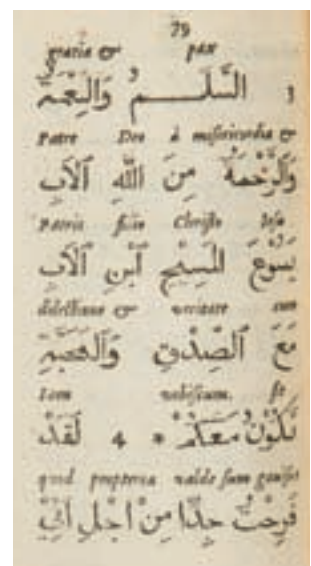 79
gratia & pax
3 السَّلَــــمُ وَالنِّعْمَةُ
Patre Deo à misericordia &
وَالرَّحْمَةُ مِنَ اللَّهِ الآبِ
Patris filio Christo Iesu
يَسُوعَ الْمَسِيحِ ٱبْنِ الآبِ
dilectione & veritate cum
مَعَ الصِّدْقِ وَالْمَحَبَّةِ
Iam vobiscum. sit
تَكُونُ مَعَكُمْ * 4 لَقَدْ
quod propterea valde sum gavisus
فَرِحْتُ جِدًّا مِنْ اجْلِ انِّي